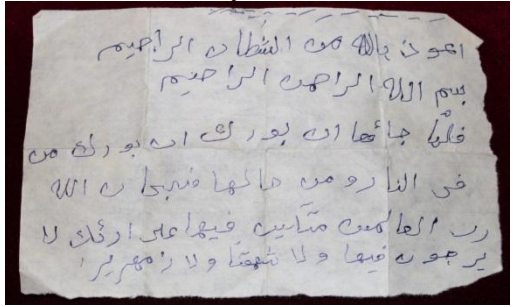 اعوذ بالله من الشطان الراجيم
بسم الله الراحمن الراحيم
فلما جائها ان بورك ان بورك من
في النار ومن حالها فسبحان الله
رب العالمين متكين فيها على ارئك لا
يرجون فيها ولا شمتا ولا زمهريرا